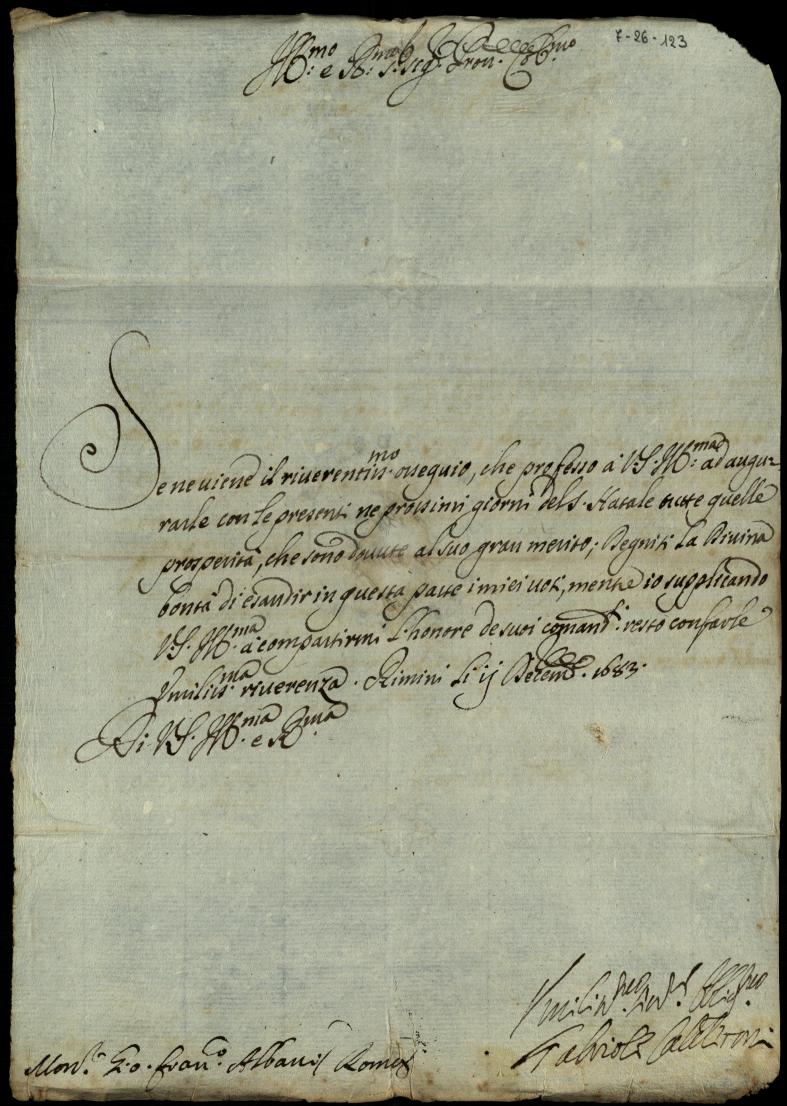 7-26-123
Ill.mo e R.mo S.r Sig.r Pron. Col.mo
Se ne viene il riverentiss.mo ossequio, che professo à V.S. Ill.ma ad augu-
rarle con le presenti ne prossimi giorni del S. Natale tutte quelle
prosperità, che sono dovute al suo gran merito; Degnisi la Divina
bontà di esaudir in questa parte i miei voti, mentre io supplicando
V.S. Ill.ma à compartirmi l'honore de suoi comand.i resto con farle
Umiliss.ma riverenza. Rimini li ij Decemb. 1683.
Di V.S. Ill.ma e R.ma
Umiliss.mo Ser.re Oblig.mo
Gabriole
Mons.r Gio. Fran.co Albani Roma